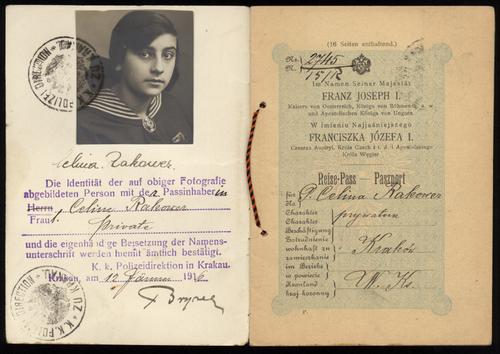 K. K. POLIZEI DIREKTION
KRAKAU
Celina Rakower
Die Identität der auf obiger Fotografie
abgebildeten Person mit der Passinhaberin
Herrn
Frau Celine Rakower
Private
und die eigenhändige Beisetzung der Namens-
unterschrift werden hiemit ämtlich bestätigt.
K. k. Polizeidirektion in Krakau.
Krakau, am 12 Jänner 1916
K.K. POLIZEI DIREKTION
KRAKAU
(16 Seiten enthaltend.)
No. 2745
N. 15/R
Im Namen Seiner Majestät
FRANZ JOSEPH I.
Kaisers von Oesterreich, Königs von Böhmen u. s. w.
und Apostolischen Königs von Ungarn.
W imieniu Najjaśniejszego
FRANCISZKA JÓZEFA I.
Cesarza Austryi, Króla Czech i t. d. i Apostolskiego
Króla Węgier
Reise-Pass — Paszport
für P. Celina Rakower
Dla
Charakter prywatna
Charakter
Beschäftigung
Zatrudnienie
wohnhaft zu Kraków
zamieszkania
im Bezirke
w powiecie
Kronland W. Ks.
kraj koronny